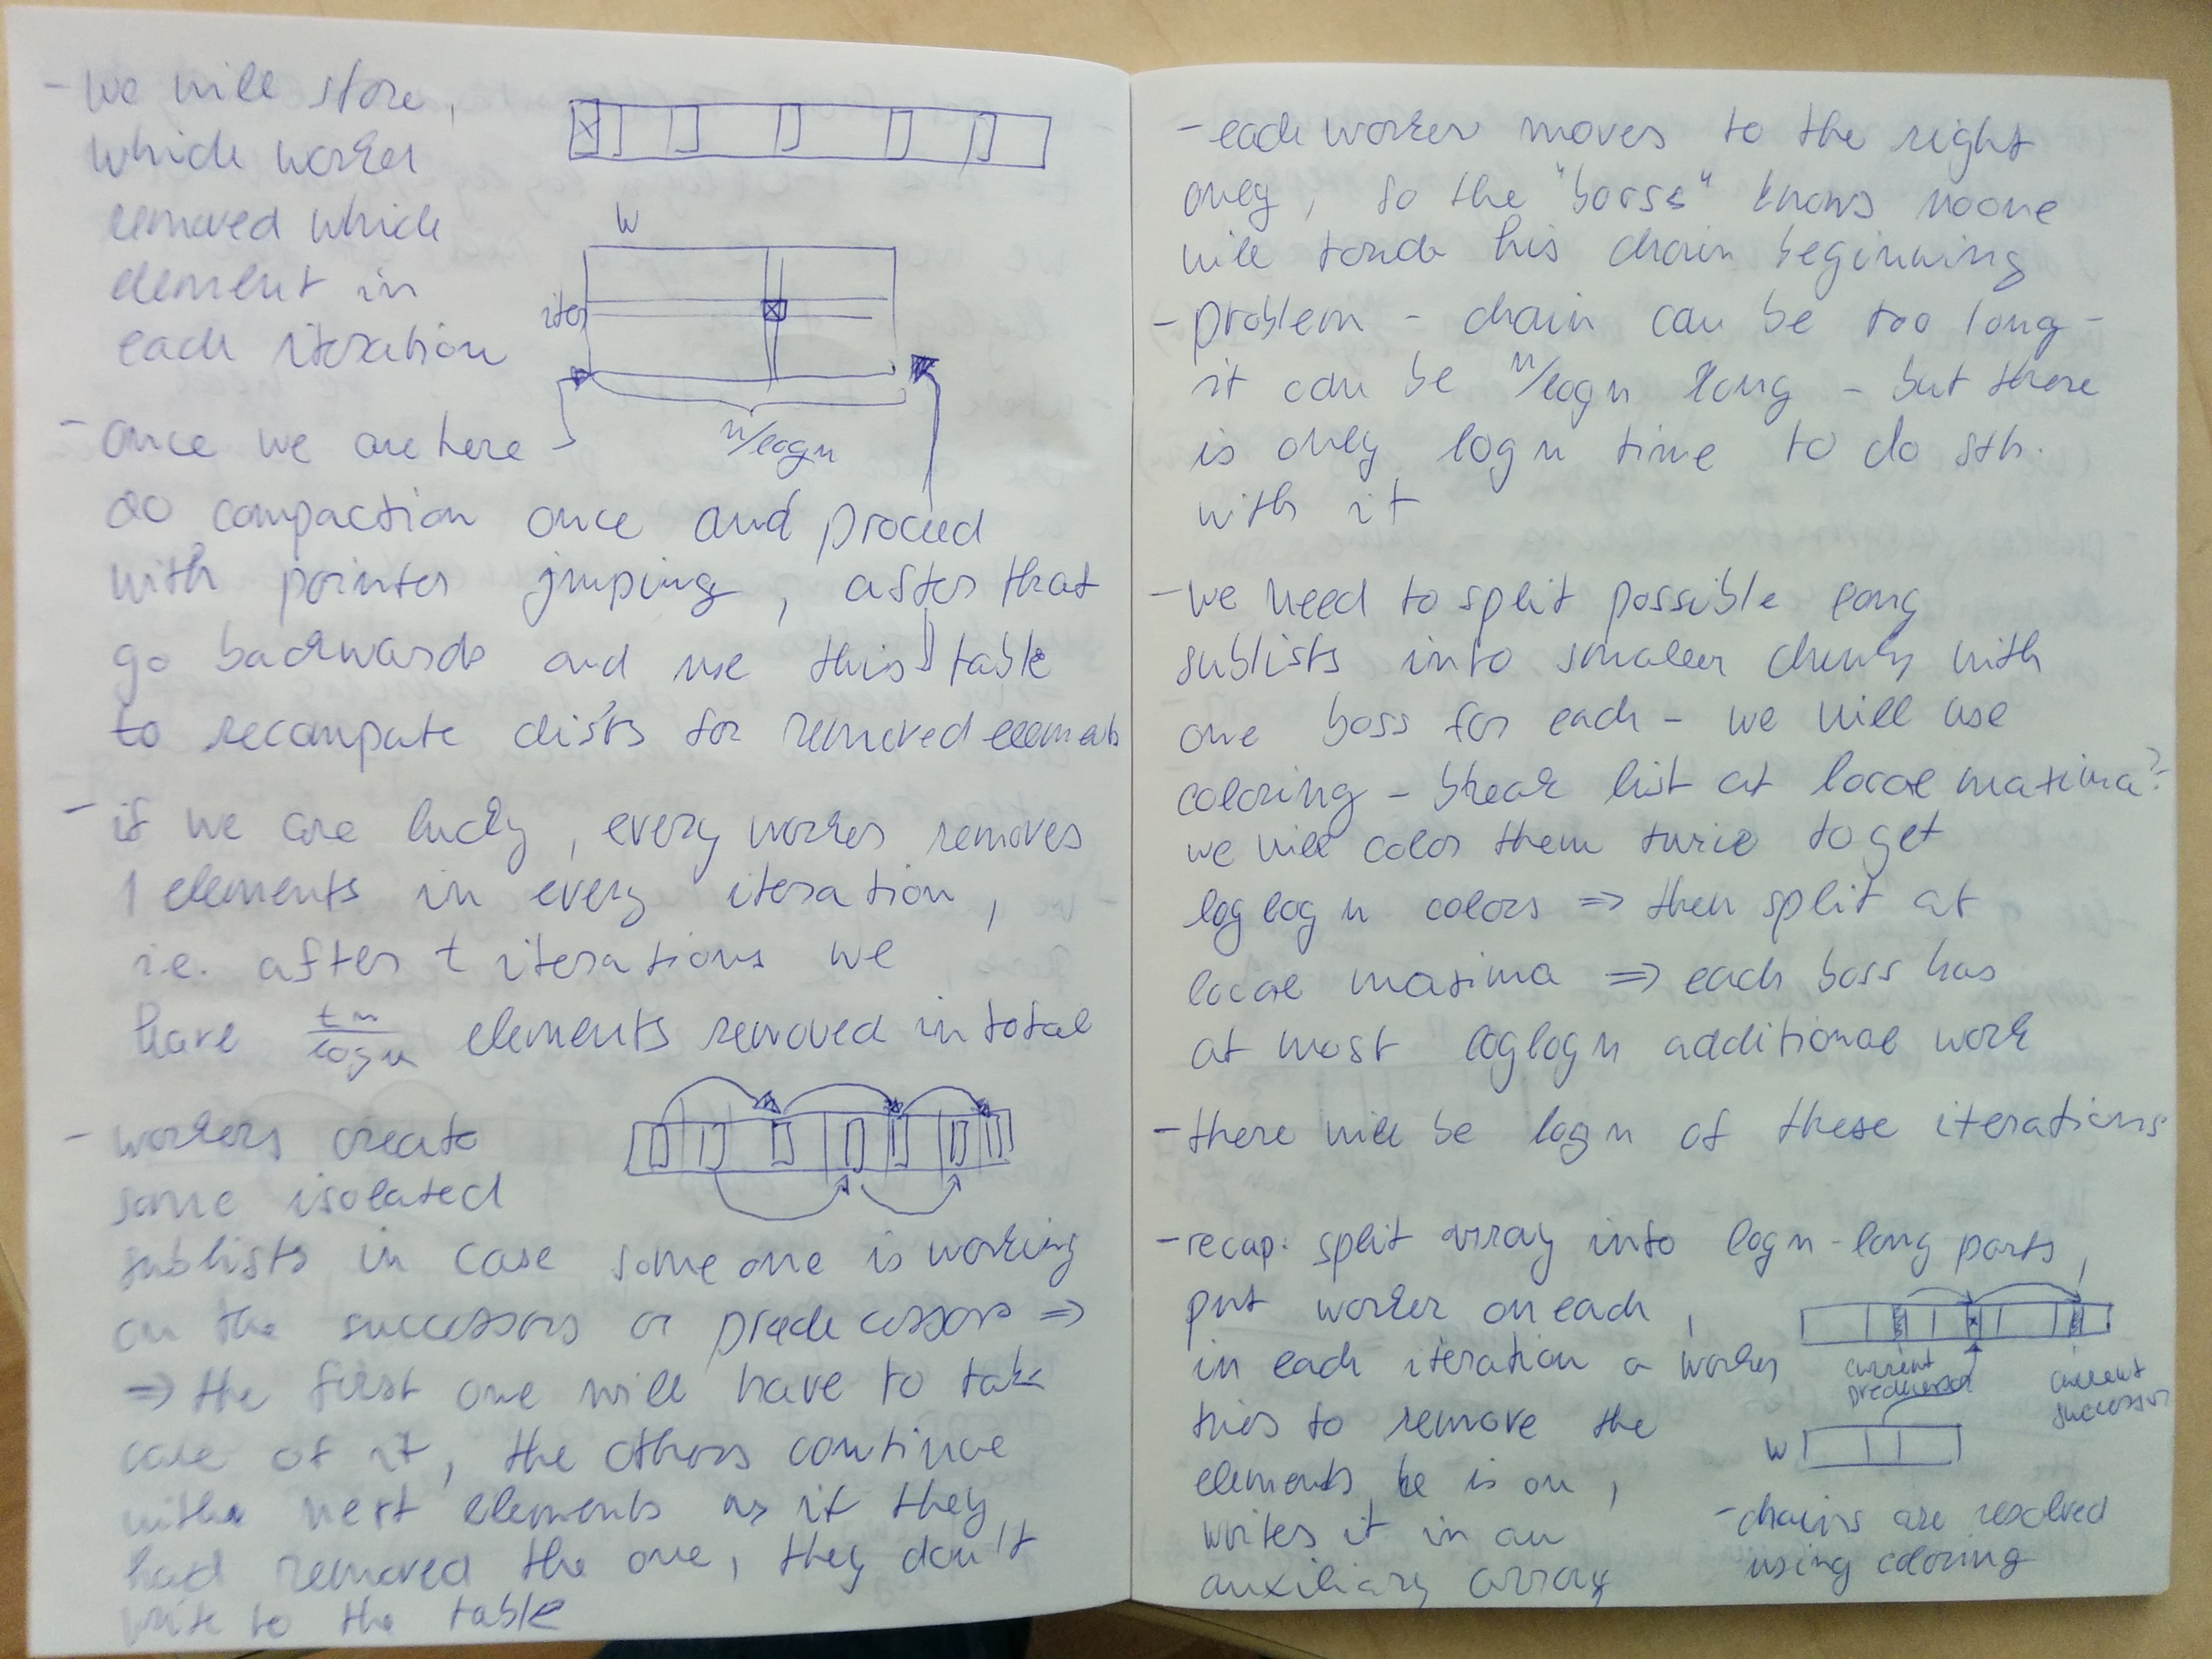 - we will store,
which worker
removed which
element in
each iteration
W
iter
n/log n
- once we are here
do compaction once and proceed
with pointer jmping, after that
go backwards and use this table
to recompute dists for removed elements
- if we are lucky, every worker removes
1 elements in every iteration,
i.e. after t iterations we
have tn/log n elements removed in total
- workers create
some isolated
sublists in case someone is working
on the successors or predecessors ⇒
⇒ the first one will have to take
care of it, the others continue
with next elements as if they
had removed the one, they don't
write to the table
- each worker moves to the right
only, so the "boss" knows noone
will touch his chain beginning
- problem - chain can be too long -
it can be n/log n long - but there
is only log n time to do sth.
with it
- we need to split possible long
sublists into smaller chunks with
one boss for each - we will use
coloring - break list at local maxima?
we will color them twice to get
log log n colors ⇒ then split at
local maxima ⇒ each boss has
at most log log n additional work
- there will be log n of these iterations
- recap: split array into log n - long parts,
put worker on each,
in each iteration a worker
tries to remove the
elements he is on,
writes it in an
auxiliary array
current
predecessor
current
successor
W
- chains are resolved
using coloring